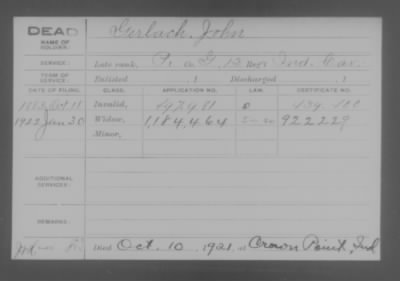 DEAD
NAME OF SOLDIER:
Gerlach, John
SERVICE: Late rank, Pr. Co. G, 13 Reg't Ind. Cav.
TERM OF SERVICE: Enlisted , 1 Discharged , 1
DATE OF FILING. CLASS. APPLICATION NO. LAW. CERTIFICATE NO.
Oct. 11 Invalid,
1922 Jan 30 Widow, 1,184,464 922229
Minor,
ADDITIONAL SERVICES:
REMARKS:
Died Oct. 10, 1921, at Crown Point, Ind